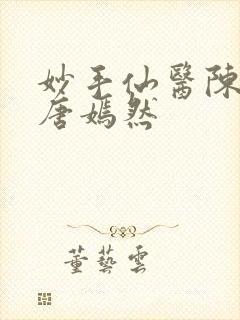 妙手仙醫陳
唐嫣然
董藝雲